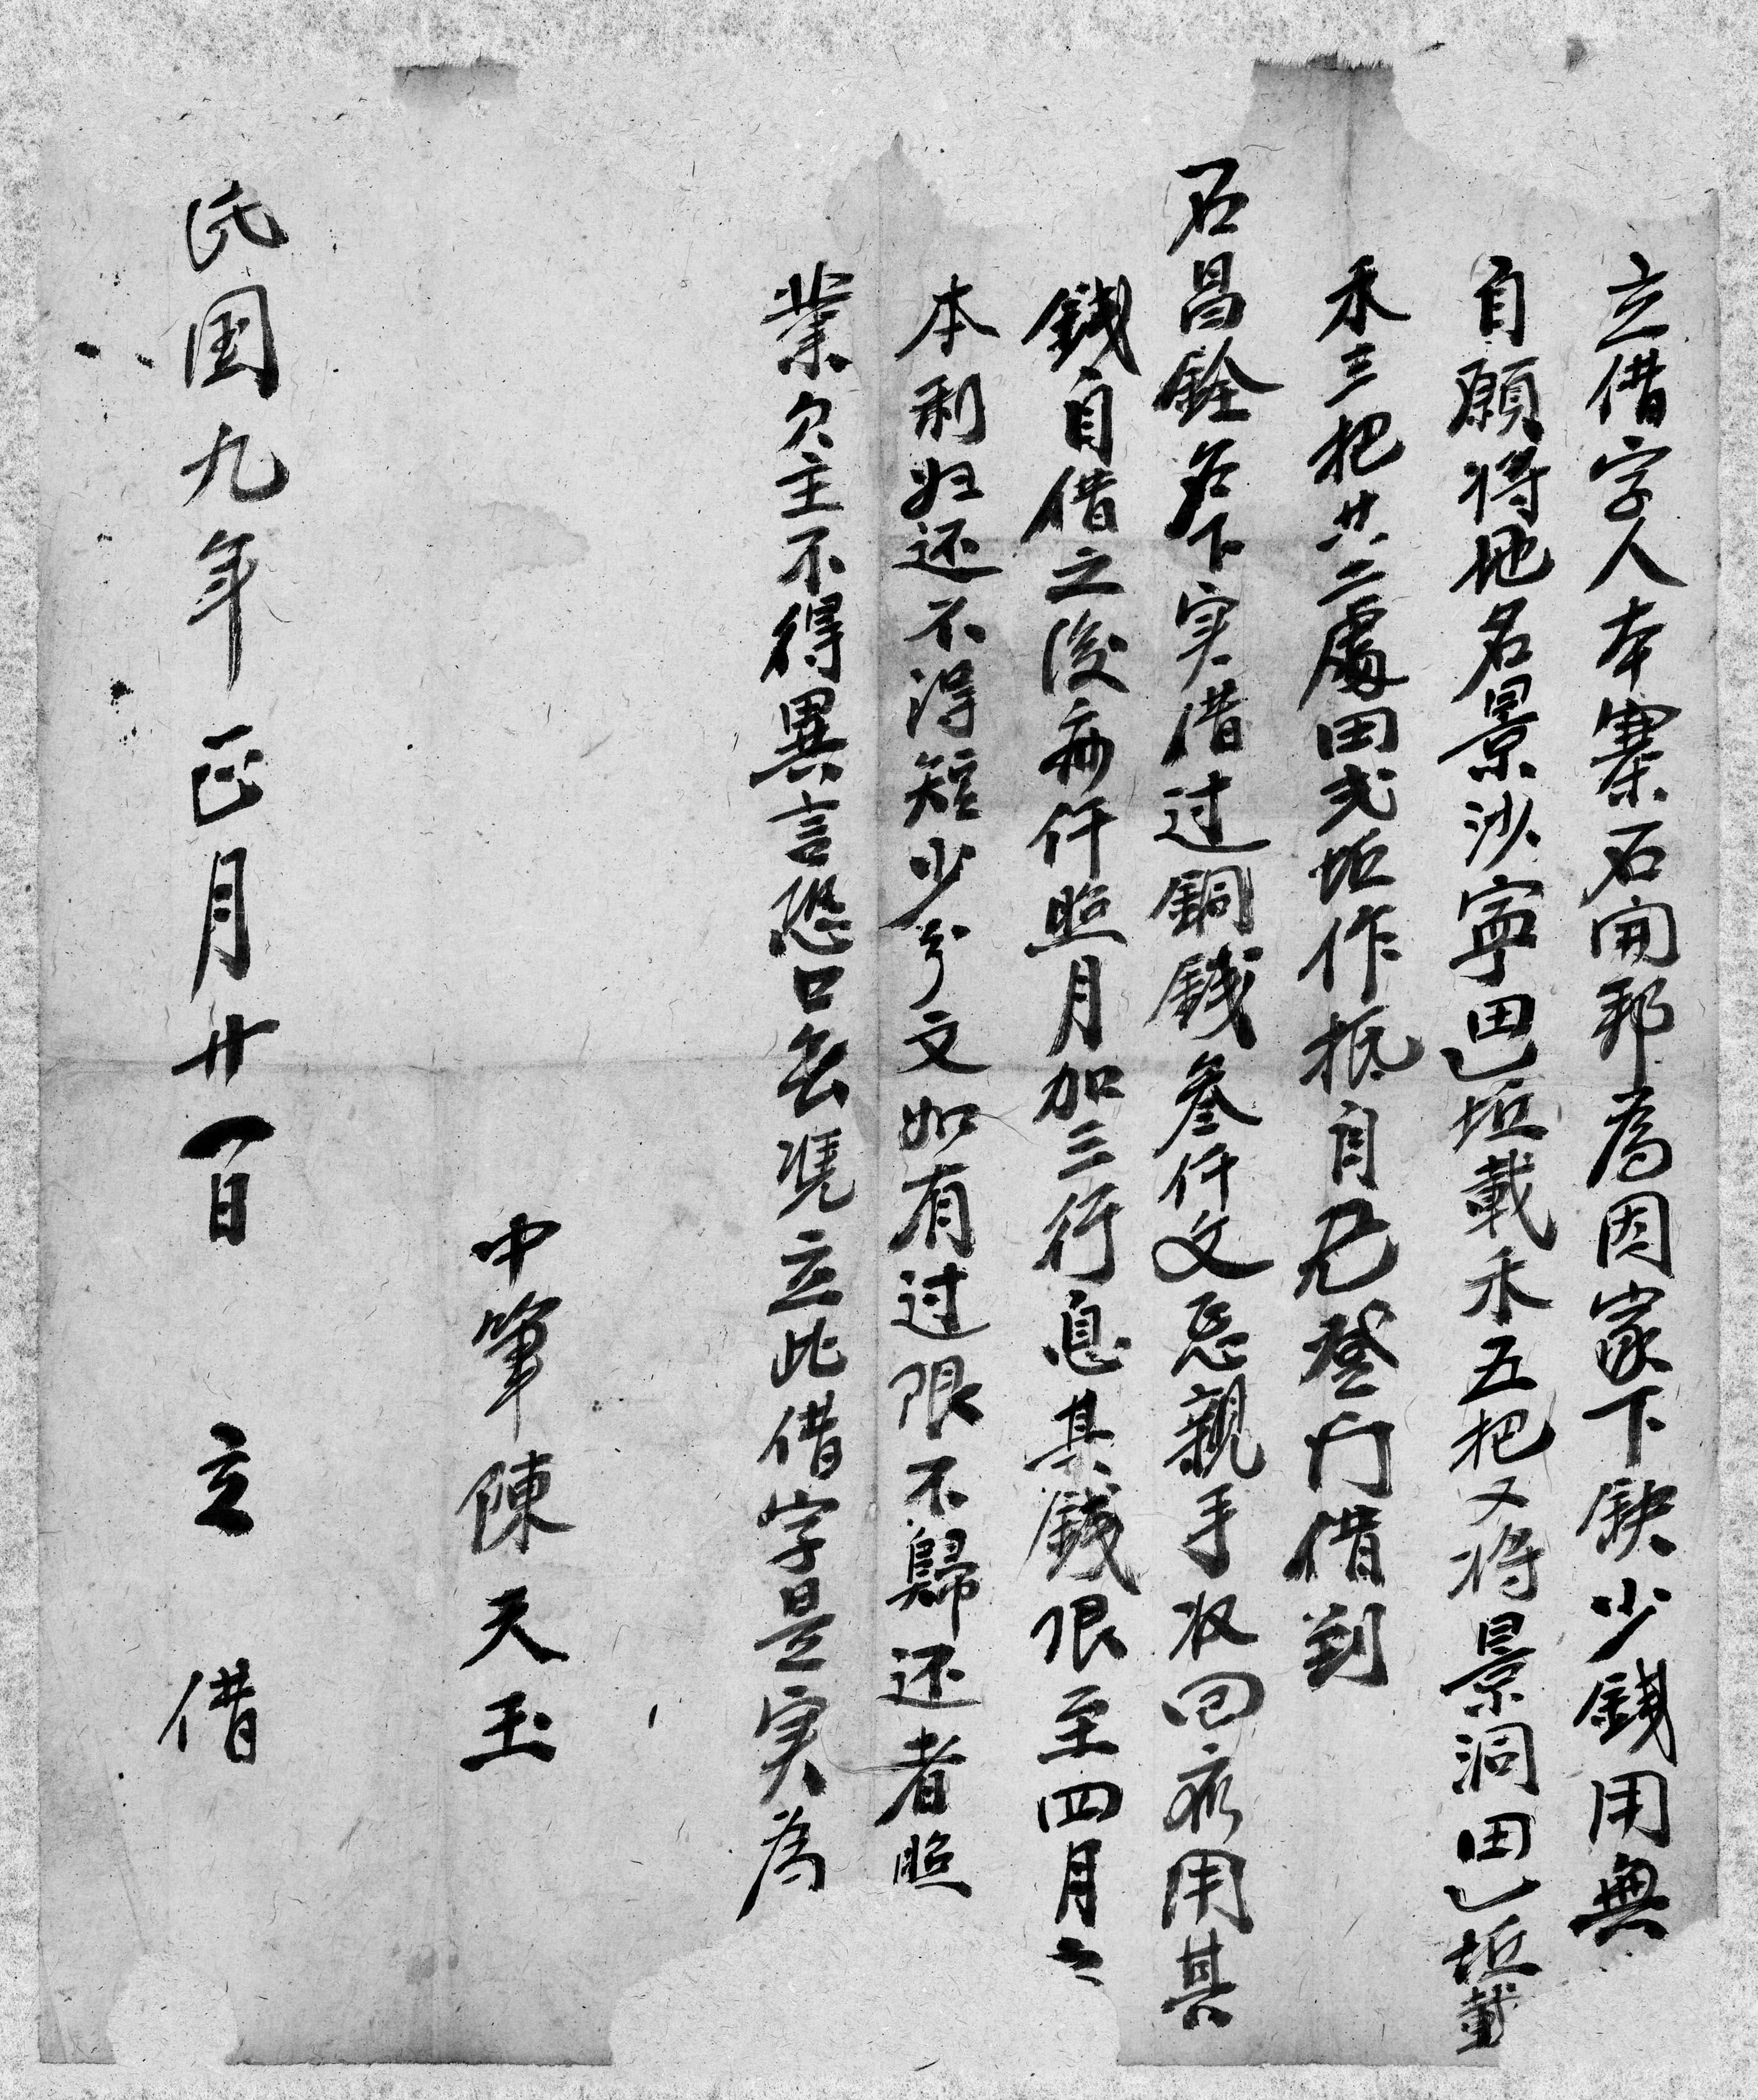 立借字人本寨石開邦為因家下缺少錢用無
自願將地名景沙寧田一坵載禾五把又將景洞田一坵載
禾三把共二處田弍坵作抵自己登门借到
石昌銓名下実借过銅錢叁仟文忌親手收回应用其
錢自借之後每仟照月加三行息其錢限至四月之
本利归还不得短少分文如有过限不歸还者照
業欠主不得異言恐口無凴立此借字是実為
中筆陳天玉
民国九年正月廿一日立借